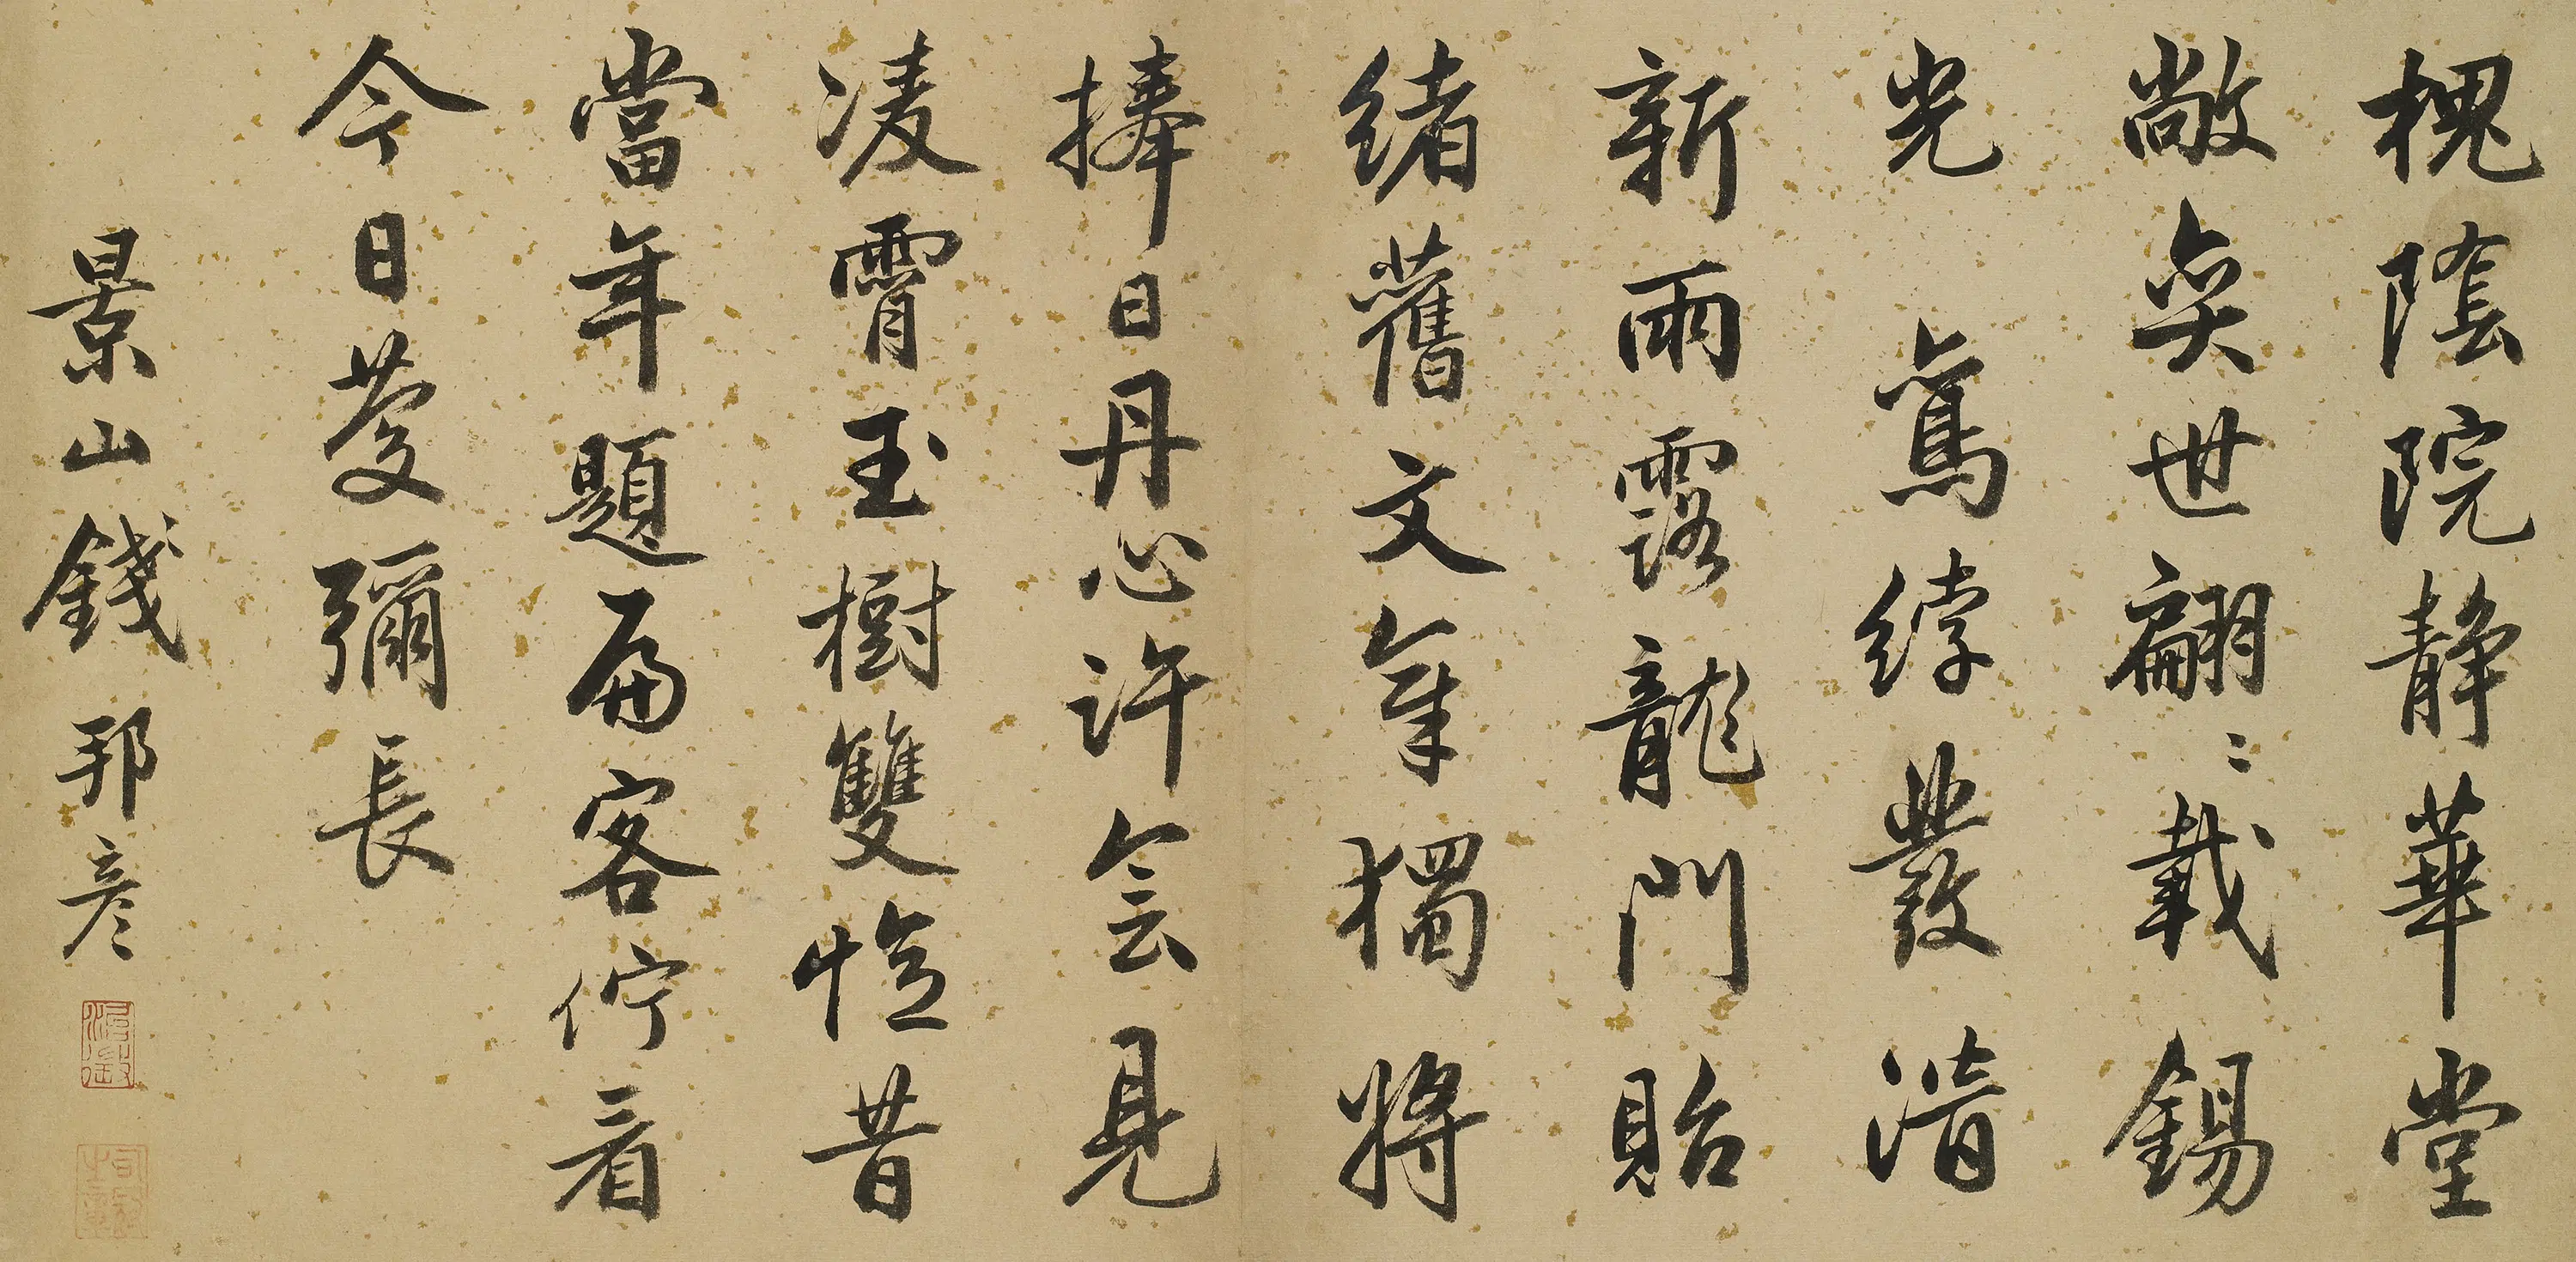 槐隂院静華堂
敞奕世翩〻載錫
光鸞綍發清
新雨露龍門貽
緒舊文章獨將
捧日丹心許会見
凌霄玉樹雙憶昔
當年題扁客佇看
今日慶彌長
景山錢邦彥